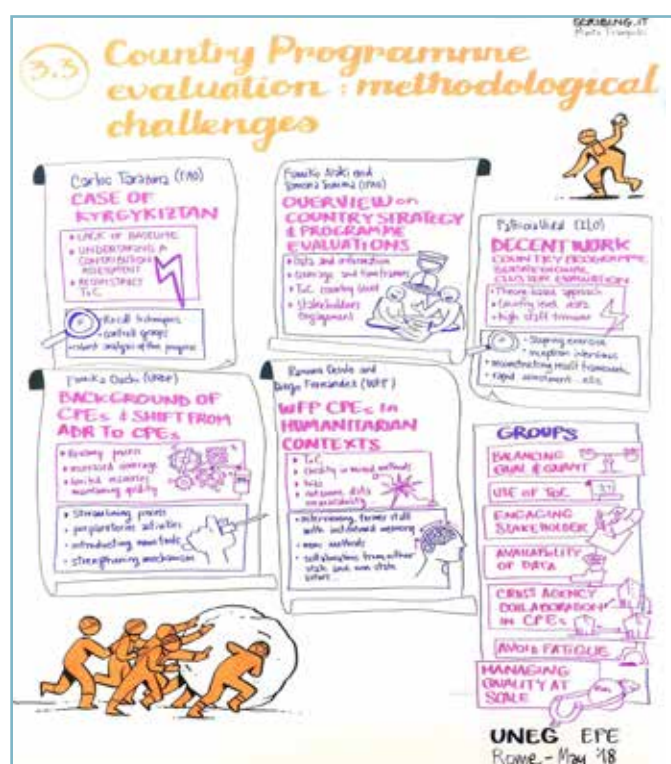 SCRIBING.IT
3.3
Country Programme
evaluation: methodological
challenges
Carlos Tarazona (FAO)
CASE OF
KYRGYKIZTAN
LACK OF BASELINE
UNDERTAKING A
CONTRIBUTION
ASSESSMENT
RECONSTRUCT
ToC
Recall techniques
control groups
robust analysis of the progress
Fumiko Araki and
Simona Somma (IFAD)
OVERVIEW on
COUNTRY STRATEGY
& PROGRAMME
EVALUATIONS
Data and information
coverage and timeframes
ToC country level
Stakeholders
engagement
Patricia Vidal (ILO)
DECENT WORK
COUNTRY PROGRAMME
SUBREGIONAL
CLUSTER EVALUATION
Theory based approach
Country level data
high staff turnover
Scoping exercise
inception interviews
reconstructing result framework
rapid assessment
(UNDP)
BACKGROUND OF
CPEs & SHIFT FROM
ADR TO CPEs
increased coverage
limited resources
maintaining quality
Streamlining process
preparatories activities
introducting new tools
strengthening mechanism
and
Diego Fernandez (WFP)
WFP CPEs in
HUMANITARIAN
CONTEXTS
ToC
mixed methods
bias
outcome data
interviewing former staff
with institutional memory
new methods
collaboration from other
state and non state
actors...
GROUPS
BALANCING
QUAL & QUANT
USE OF ToC
ENGAGING
STAKEHOLDER
AVAILABILITY
OF DATA
CROSS AGENCY
COLLABORATION
IN CPEs
AVOID FATIGUE
MANAGING
QUALITY AT
SCALE
UNEG EPE
Rome - May '18